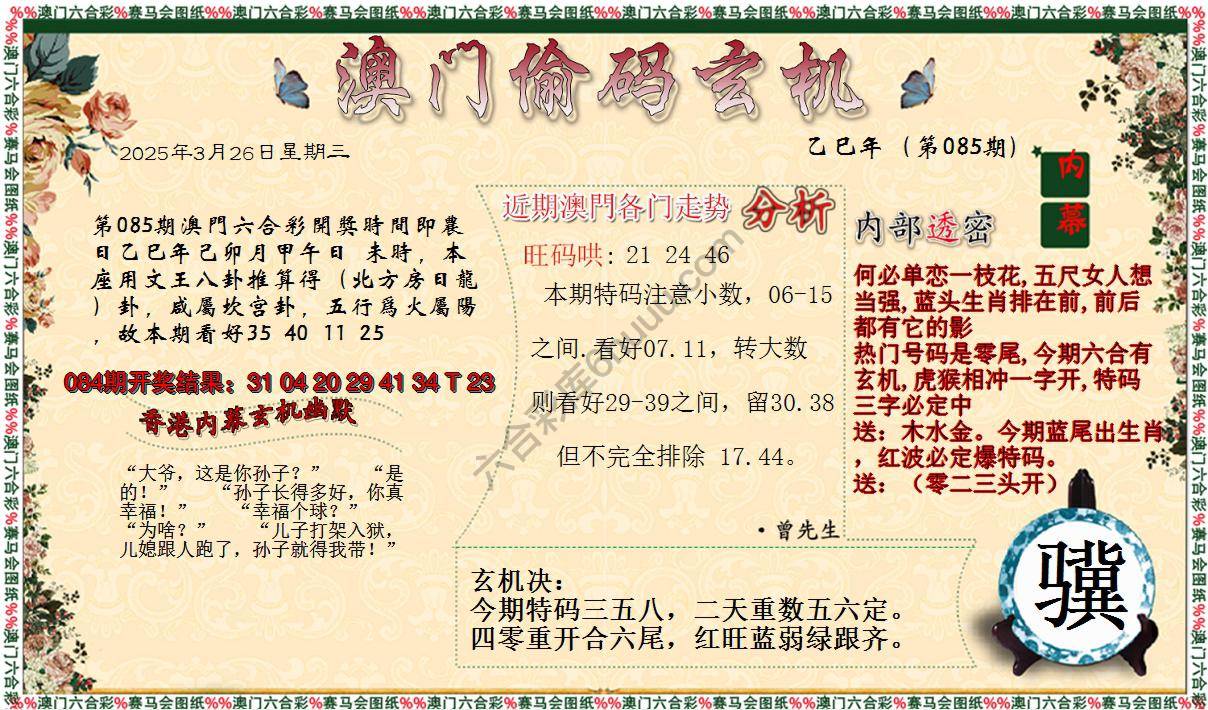 %%澳门六合彩%赛马会图纸%%澳门六合彩%赛马会图纸%%澳门六合彩%赛马会图纸%%澳门六合彩%赛马会图纸%%澳门六合彩%赛马会图纸%%澳门六合彩%赛马会图纸%%
澳门偷码玄机
2025年3月26日星期三
乙巳年（第085期）
内幕
第085期澳門六合彩開獎時間即農
日乙巳年己卯月甲午日 未時，本
座用文王八卦推算得（北方房日龍
）卦，咸屬坎宫卦，五行爲火屬陽
，故本期看好35 40 11 25
084期开奖结果：31 04 20 29 41 34 T 23
香港内幕玄机幽默
“大爷，这是你孙子？” “是
的！” “孙子长得多好，你真
幸福！” “幸福个球？”
“为啥？” “儿子打架入狱，
儿媳跟人跑了，孙子就得我带！”
近期澳門各门走势 分析
旺码哄: 21 24 46
本期特码注意小数，06-15
之间.看好07.11，转大数
则看好29-39之间，留30.38
但不完全排除 17.44。
·曾先生
内部透密
何必单恋一枝花,五尺女人想
当强,蓝头生肖排在前,前后
都有它的影
热门号码是零尾,今期六合有
玄机,虎猴相冲一字开,特码
三字必定中
送：木水金。今期蓝尾出生肖
，红波必定爆特码。
送：（零二三头开）
玄机决：
今期特码三五八，二天重数五六定。
四零重开合六尾，红旺蓝弱绿跟齐。
骥